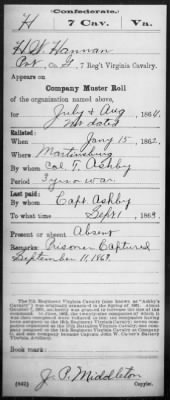 Confederate.
H 7 Cav. Va.
H W. Hannan
Pvt, Co. G, 7 Reg't Virginia Cavalry.
Appears on
Company Muster Roll
of the organization named above,
for July & Aug, 1864.
Not dated
Enlisted:
When Jany 15, 1862.
Where Martinsburg
By whom Col. T. Ashby
Period 3 yrs or war.
Last paid:
By whom Capt Ashby
To what time Sept 1, 1863.
Present or absent Absent
Remarks: Prisoner Captured
September 11, 1863.
Book mark:
(642) J. P. Middleton
Copyist.